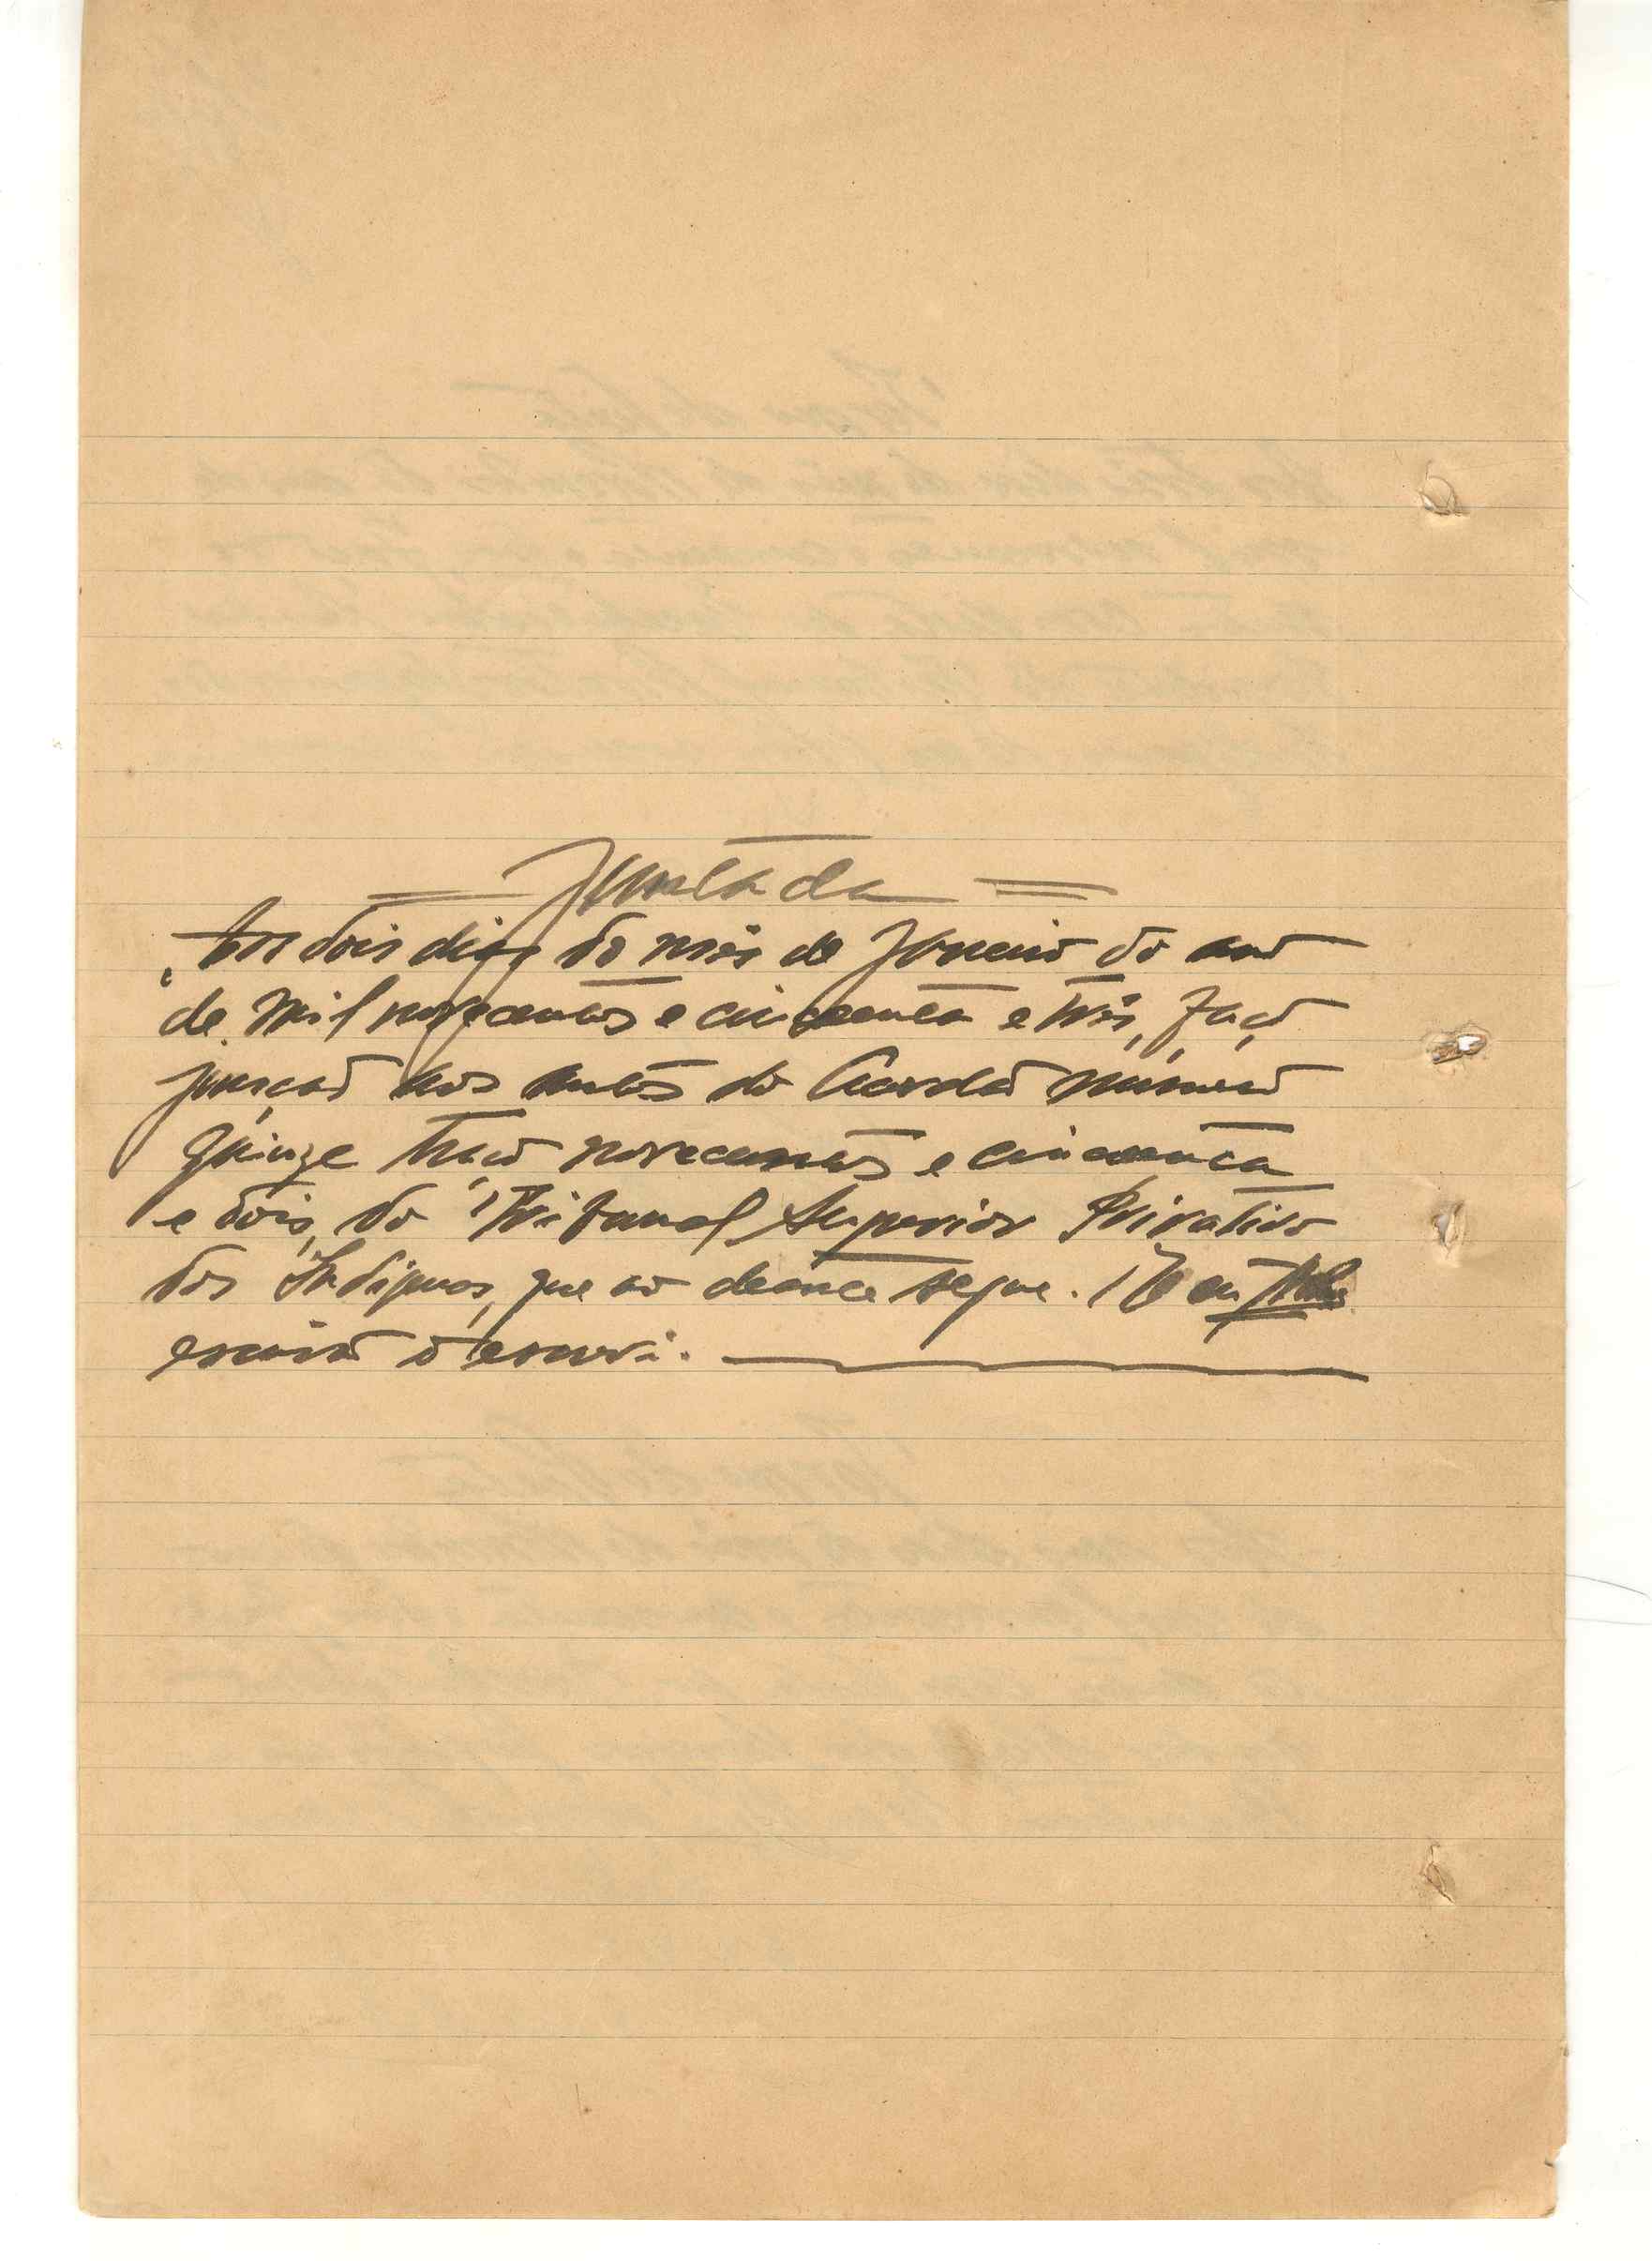 = Juntada =
Aos dois dias do mês de Janeiro do ano
de mil novecentos e cincoenta e três, faço
junção aos autos do Acordão número
quinze traço novecentos e cincoenta
e dois, do Tribunal Superior Privativo
dos Indígenas, que ao deante segue. E eu
escrivão o escrevi.